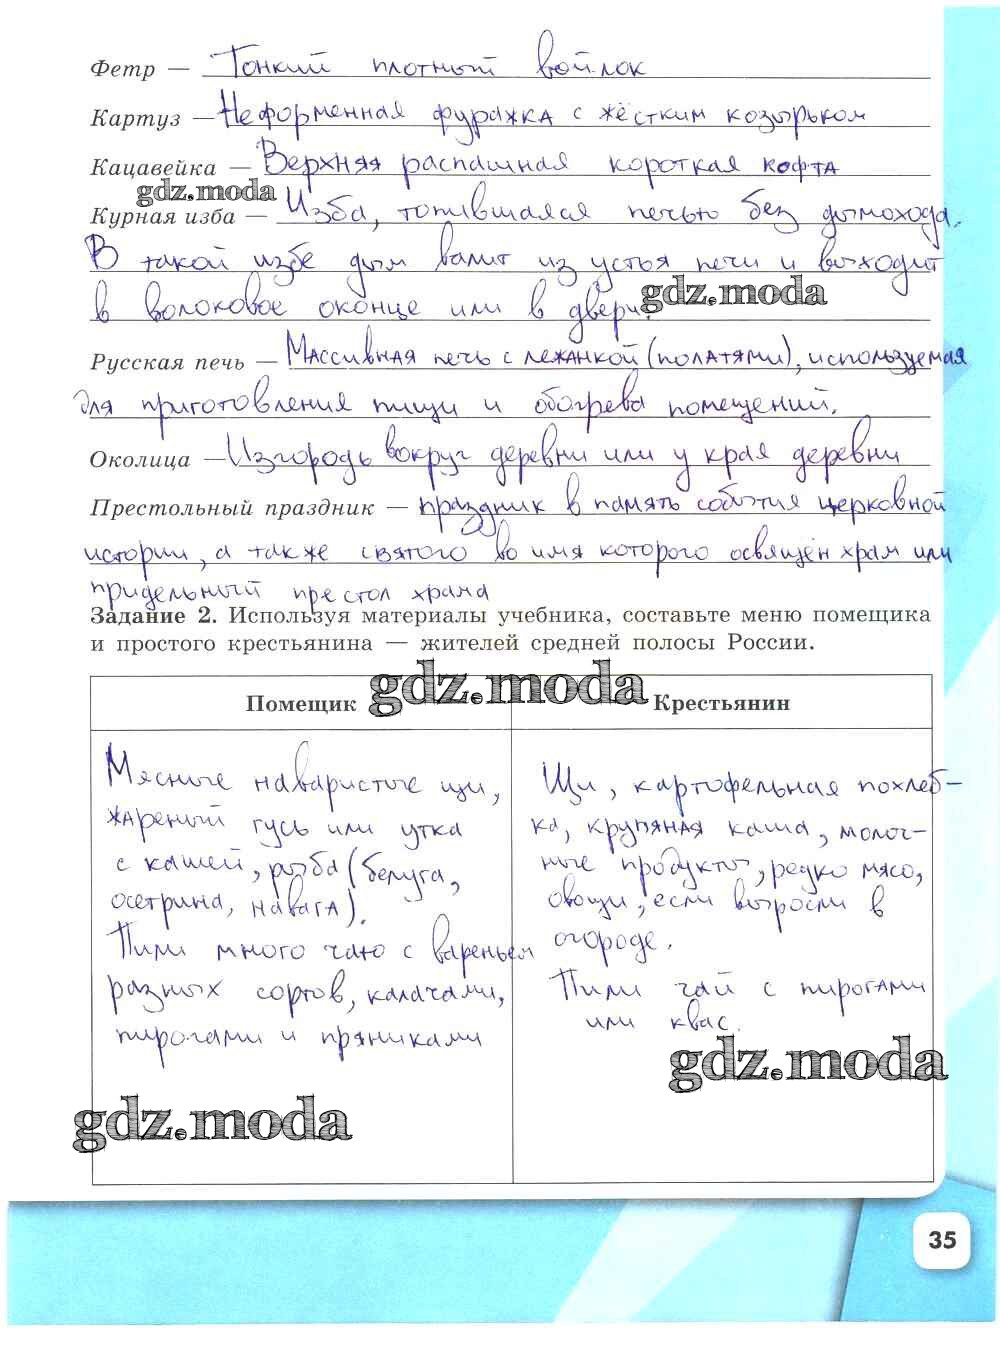 Фетр — Тонкий плотный войлок
Картуз — Неформенная фуражка с жёстким козырьком
Кацавейка — Верхняя распашная короткая кофта
gdz.moda
Курная изба — Изба, топившаяся печью без дымохода.
В такой избе дым валит из устья печи и выходит
gdz.moda
в волоковое оконце или в двери.
Русская печь — Массивная печь с лежанкой (полатями), используемая
для приготовления пищи и обогрева помещений.
Околица — Изгородь вокруг деревни или у края деревни
Престольный праздник — праздник в память события церковной
истории, а также святого во имя которого освящён храм или
придельный престол храма
Задание 2. Используя материалы учебника, составьте меню помещика
и простого крестьянина — жителей средней полосы России.
gdz.moda
Помещик
Мясные наваристые щи,
жареный гусь или утка
с кашей, рыба (белуга,
осетрина, навага).
Пили много чаю с вареньем
разных сортов, калачами,
пирогами и пряниками
gdz.moda
Крестьянин
Щи, картофельная похлеб-
ка, крупяная каша, молоч-
ные продукты, редко мясо,
овощи, если выросли в
огороде.
Пили чай с пирогами
или квас.
gdz.moda
35